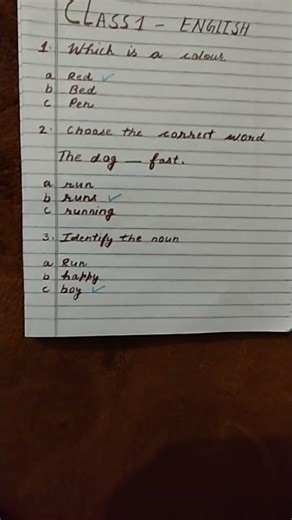 CLASS 1 - ENGLISH
1. Which is a colour
a Red ✓
b Bed
c Pen
2. Choose the correct word
The dog — fast.
a run
b runs ✓
c running
3. Identify the noun
a Run
b happy
c boy ✓